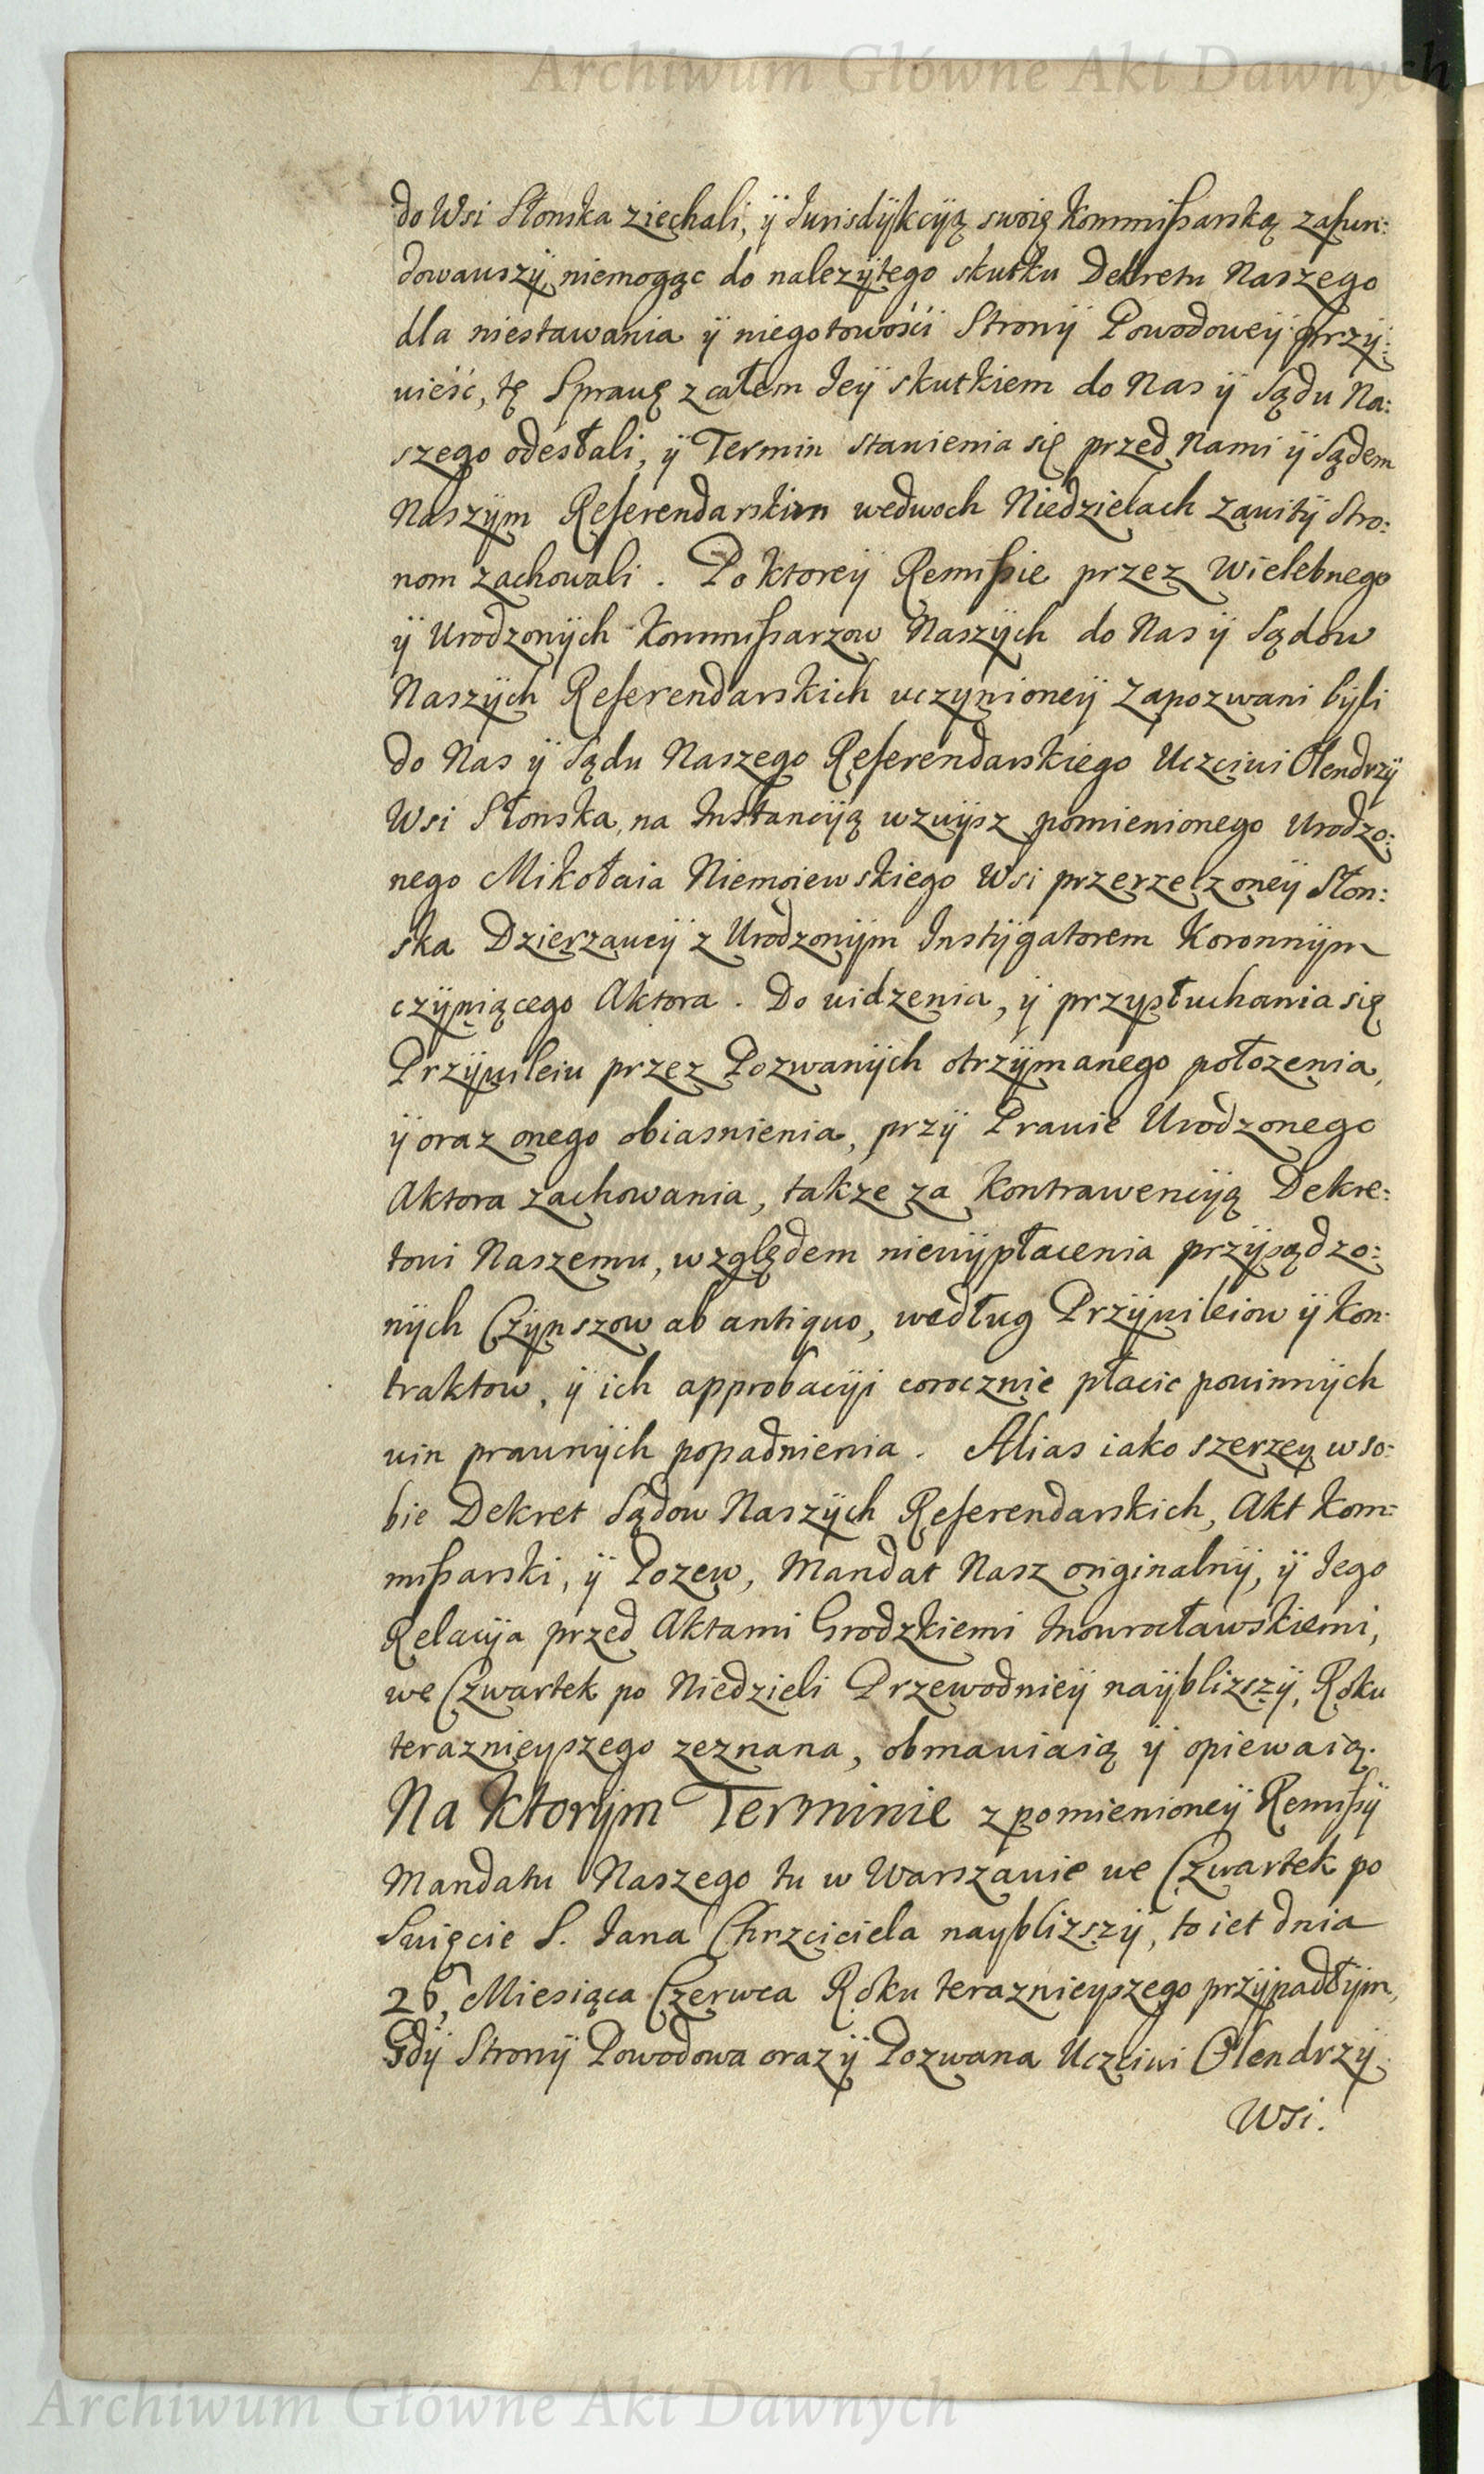 Archiwum Główne Akt Dawnych
do Wsi Słonska ziechali, ÿ Jurisdÿkcÿą swoię Kommißarską zafun:
dowauszÿ, niemogąc do nalezÿtego skutku Dekretu Naszego
dla niestawania ÿ niegotowości Stronÿ Powodoweÿ przÿ:
uieść, tę Sprauę z całem Jeÿ skutkiem do Nas ÿ Sądu Na:
szego odesłali, ÿ Termin stauienia się przed Nami ÿ Sądem
Naszÿm Referendarskim wedwoch Niedzielach Zauitÿ Stro:
nom zachowali. Po ktoreÿ Remißie przez Wielebnego
ÿ Urodzonÿch Kommißarzow Naszÿch do Nas ÿ Sądow
Naszÿch Referendarskich uczÿnioneÿ Zapozwani bÿli
do Nas ÿ Sądu Naszego Referendarskiego Uczciui Olendrzÿ
Wsi Słonska, na Instancÿą wzuÿsz pomienionego Urodzo:
nego Mikołaia Niemoiewskiego Wsi przerzeczoneÿ Słon:
ska Dzierzaucÿ z Urodzonÿm Instÿgatorem Koronnÿm
czÿniącego Aktora. Do uidzenia, ÿ przÿsłuchania się
Przÿuileiu przez Pozwanÿch otrzÿmanego połozenia,
ÿ oraz onego obiasnienia, przÿ Prauie Urodzonego
Aktora zachowania, takze za Kontrawencÿą Dekre:
toui Naszemu, względem nieuÿpłacenia przÿsądzo:
nÿch Czÿnszow ab antiquo, według Przÿuileiow ÿ Kon:
traktow, ÿ ich approbacÿi corocznie płacic pouinnÿch
uin praunÿch popadnienia. Alias iako szerzey w so:
bie Dekret Sądow Naszÿch Referendarskich, Akt Kom:
mißarski, ÿ Pozew, Mandat Nasz originalnÿ, ÿ Jego
Relacÿa przed Aktami Grodzkiemi Inowrocławskiemi,
we Czwartek po Niedzieli Przewodnieÿ naÿblizszÿ, Roku
teraznieÿszego zeznana, obmauiaią ÿ opiewaią.
Na Ktorÿm Terminie z pomienioneÿ Remißÿ
Mandatu Naszego tu w Warszauie we Czwartek po
Suięcie S. Jana Chrzciciela nayblizszÿ, to iet dnia
26, Miesiąca Czerwca Roku teraznieyszego przÿpadłÿm,
Gdÿ Stronÿ Powodowa oraz ÿ Pozwana Uczciui Olendrzÿ
Wsi.
Archiwum Główne Akt Dawnych